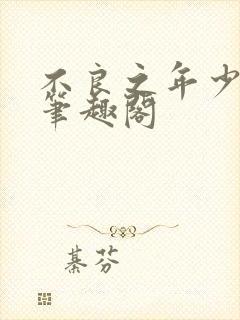 不良之年少
笔趣阁
綦芬